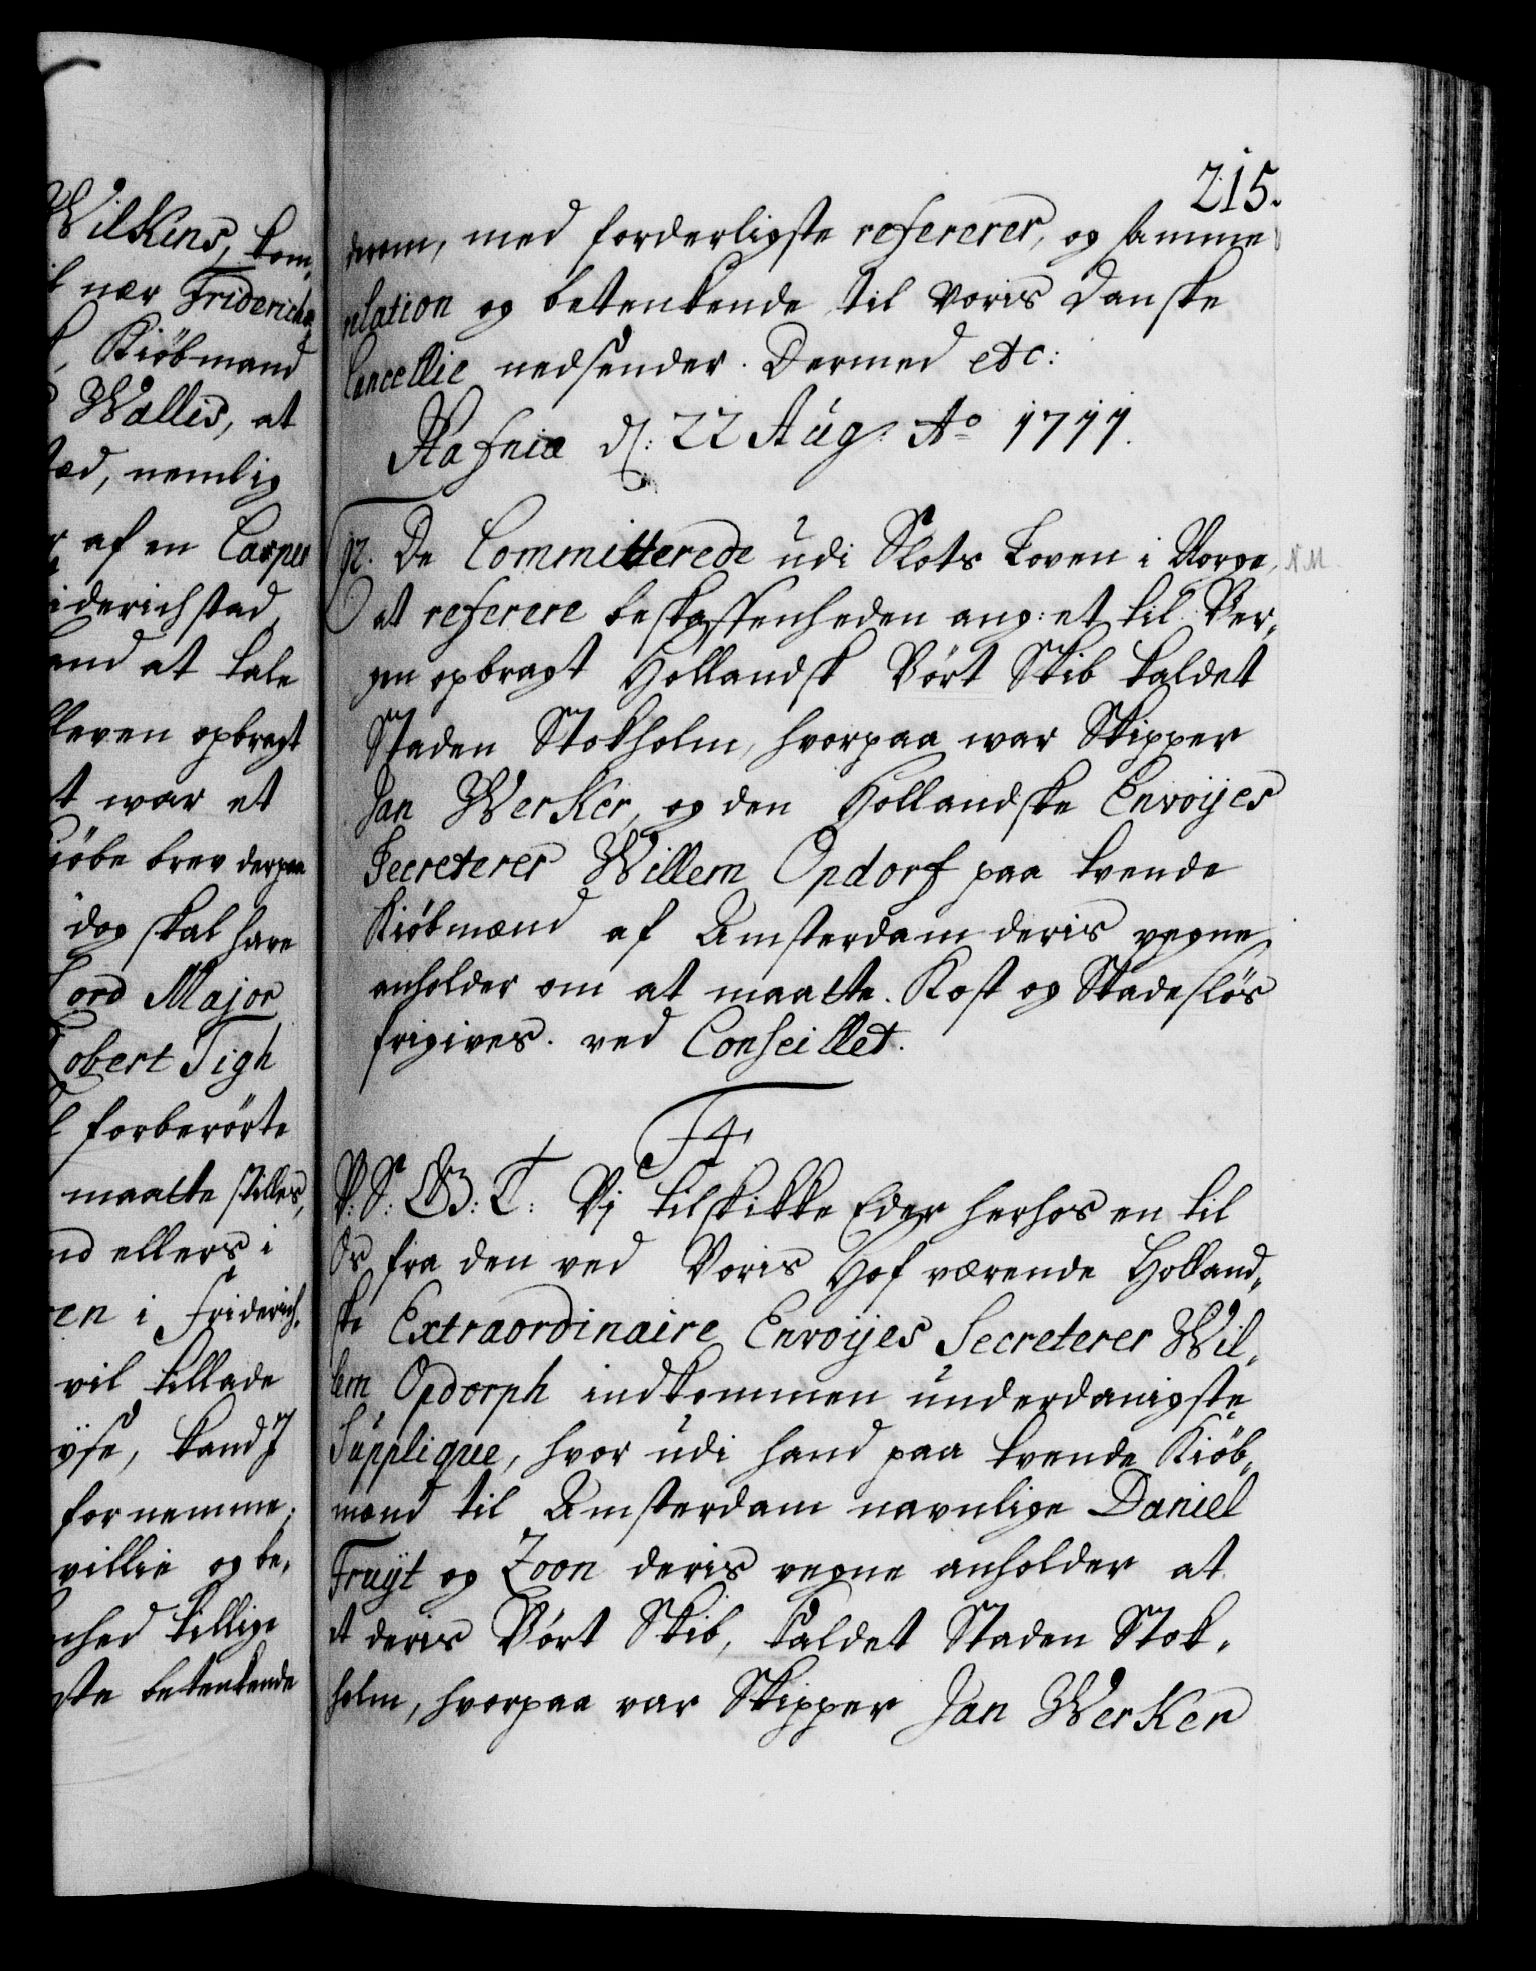 Wilkens, kom-
nær Friderichs
Kiöbmand
Wallis, at
nemlig
af en Casper
iderichstad
at tale
opbragt
war et
brev derpaa
dog skal have
Lord Major
Robert Tigh
forberörte
maatte stilles,
ellers i
i Friderich-
vil tillade
kand I
fornemme,
villie og be-
tillige
betenkende
215.
derom, med forderligste refererer, og samme
relation og betenkende til Voris Danske
Cancellie nedsender. Dermed etc:
Hafniæ d: 22 Aug: Ao 1711.
92. De Committerede udi Slots Loven i Norge,
N.M.
at referere beskaffenheden ang: et til Ber-
gen opbragt Hollandsk Vört Skib kaldet
Staden Stokholm, hvorpaa war Skipper
Jan Werker, og den Hollandske Envoijes
Secreterer Willem Opdorf paa tvende
Kiöbmænd af Amsterdam deris vegne
anholder om at maatte. Kost og Skadeslös
frigives. ved Conseillet.
F4.
V: S: G: T: Vj tilskikke Eder herhos en til
Os fra den ved Voris Hof værende Holland-
ske Extraordinaire Envoijes Secreterer Wil-
lem Opdorph indkommen underdanigste
Supplique, hvor udi hand paa tvende Kiöb-
mænd til Amsterdam navnlige Daniel
Fruijt og Zoon deris vegne anholder at
et deris Vört Skib, kaldet Staden Stok-
holm, hvorpaa var Skipper Jan Werker